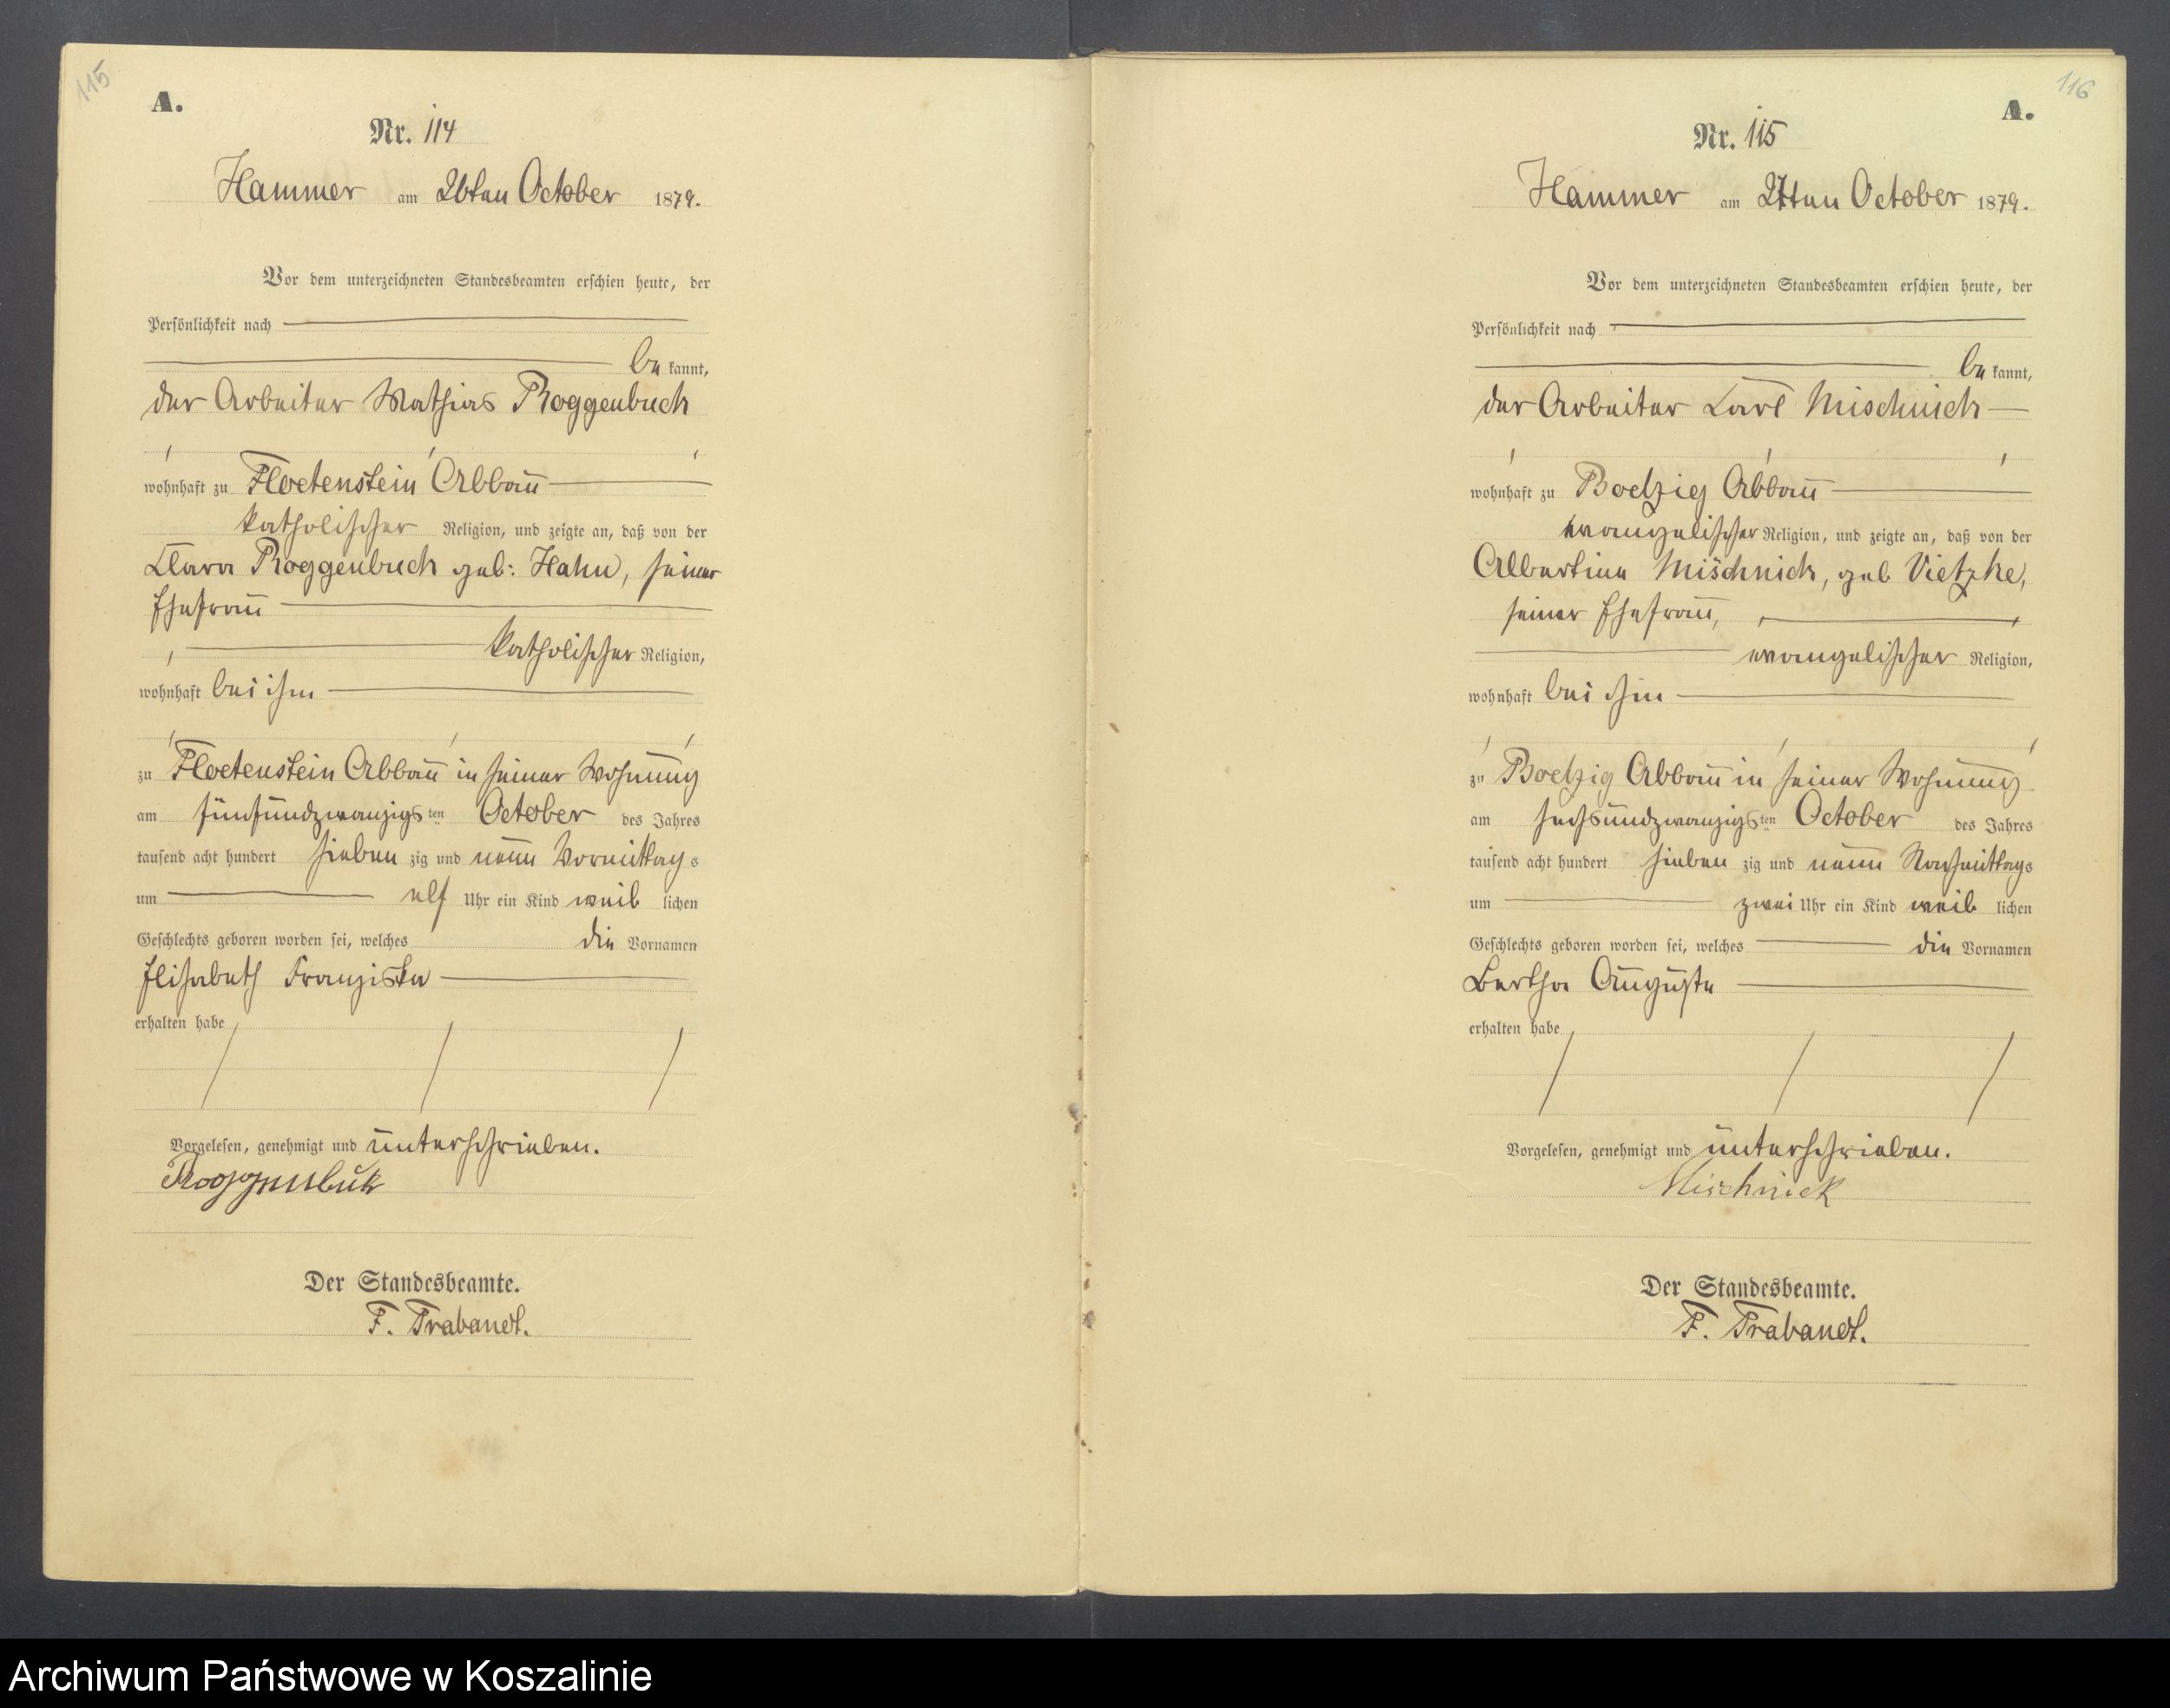 115
A.
Nr. 114
Hammer am 26ten October 1879.
Vor dem unterzeichneten Standesbeamten erschien heute, der
Persönlichkeit nach
be kannt,
der Arbeiter Mathias Roggenbuck
wohnhaft zu Floetenstein Abbau
katholischer Religion, und zeigte an, daß von der
Clara Roggenbuck geb: Hahn, seiner
Ehefrau
katholischer Religion,
wohnhaft bei ihm
zu Floetenstein Abbau in seiner Wohnung
am fünfundzwanzigs ten October des Jahres
tausend acht hundert sieben zig und neun Vormittag s
um elf Uhr ein Kind weib lichen
Geschlechts geboren worden sei, welches die Vornamen
Elisabeth Franziska
erhalten habe
Vorgelesen, genehmigt und unterschrieben.
Roggenbuk
Der Standesbeamte.
F. Trabandt.
116
A.
Nr. 115
Hammer am 27ten October 1879.
Vor dem unterzeichneten Standesbeamten erschien heute, der
Persönlichkeit nach
be kannt,
der Arbeiter Carl Mischnick
wohnhaft zu Boelzig Abbau
evangelischer Religion, und zeigte an, daß von der
Albertine Mischnick, geb Vietzke,
seiner Ehefrau,
evangelischer Religion,
wohnhaft bei ihm
zu Boelzig Abbau in seiner Wohnung
am sechsundzwanzigs ten October des Jahres
tausend acht hundert sieben zig und neun Nachmittags
um zwei Uhr ein Kind weib lichen
Geschlechts geboren worden sei, welches die Vornamen
Bertha Auguste
erhalten habe
Vorgelesen, genehmigt und unterschrieben.
Mischnick
Der Standesbeamte.
F. Trabandt.
Archiwum Państwowe w Koszalinie